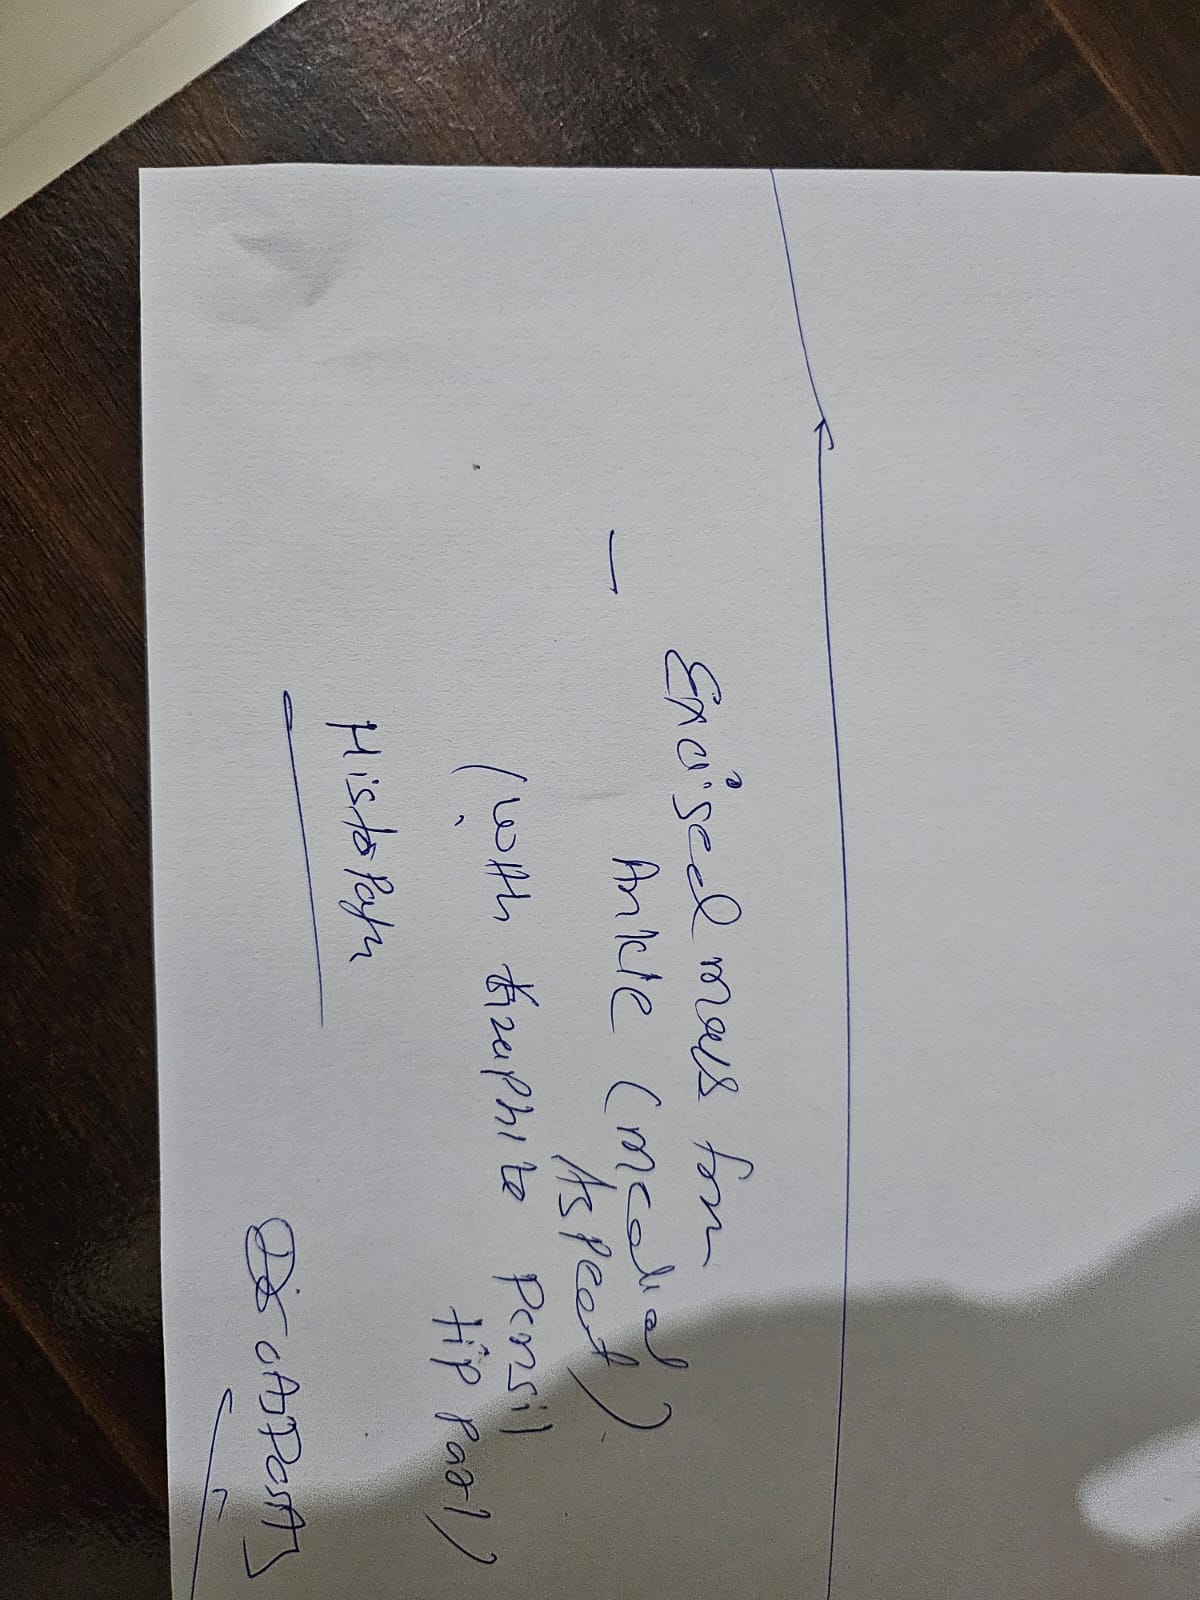 Excised mass from
— Ankle (medial
Aspect)
(with Graphite Pensil
tip Part)
Histopath